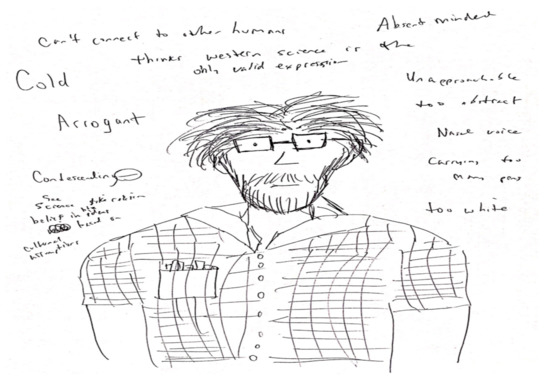 Can't connect to other humans
Absent minded
thinks western science is the
only valid expression
Cold
Unapproachable
too abstract
Arrogant
Nasal voice
Condescending
Carrying too
many pens
See
Science
belief in ideas
based on
cultural
assumptions
too white